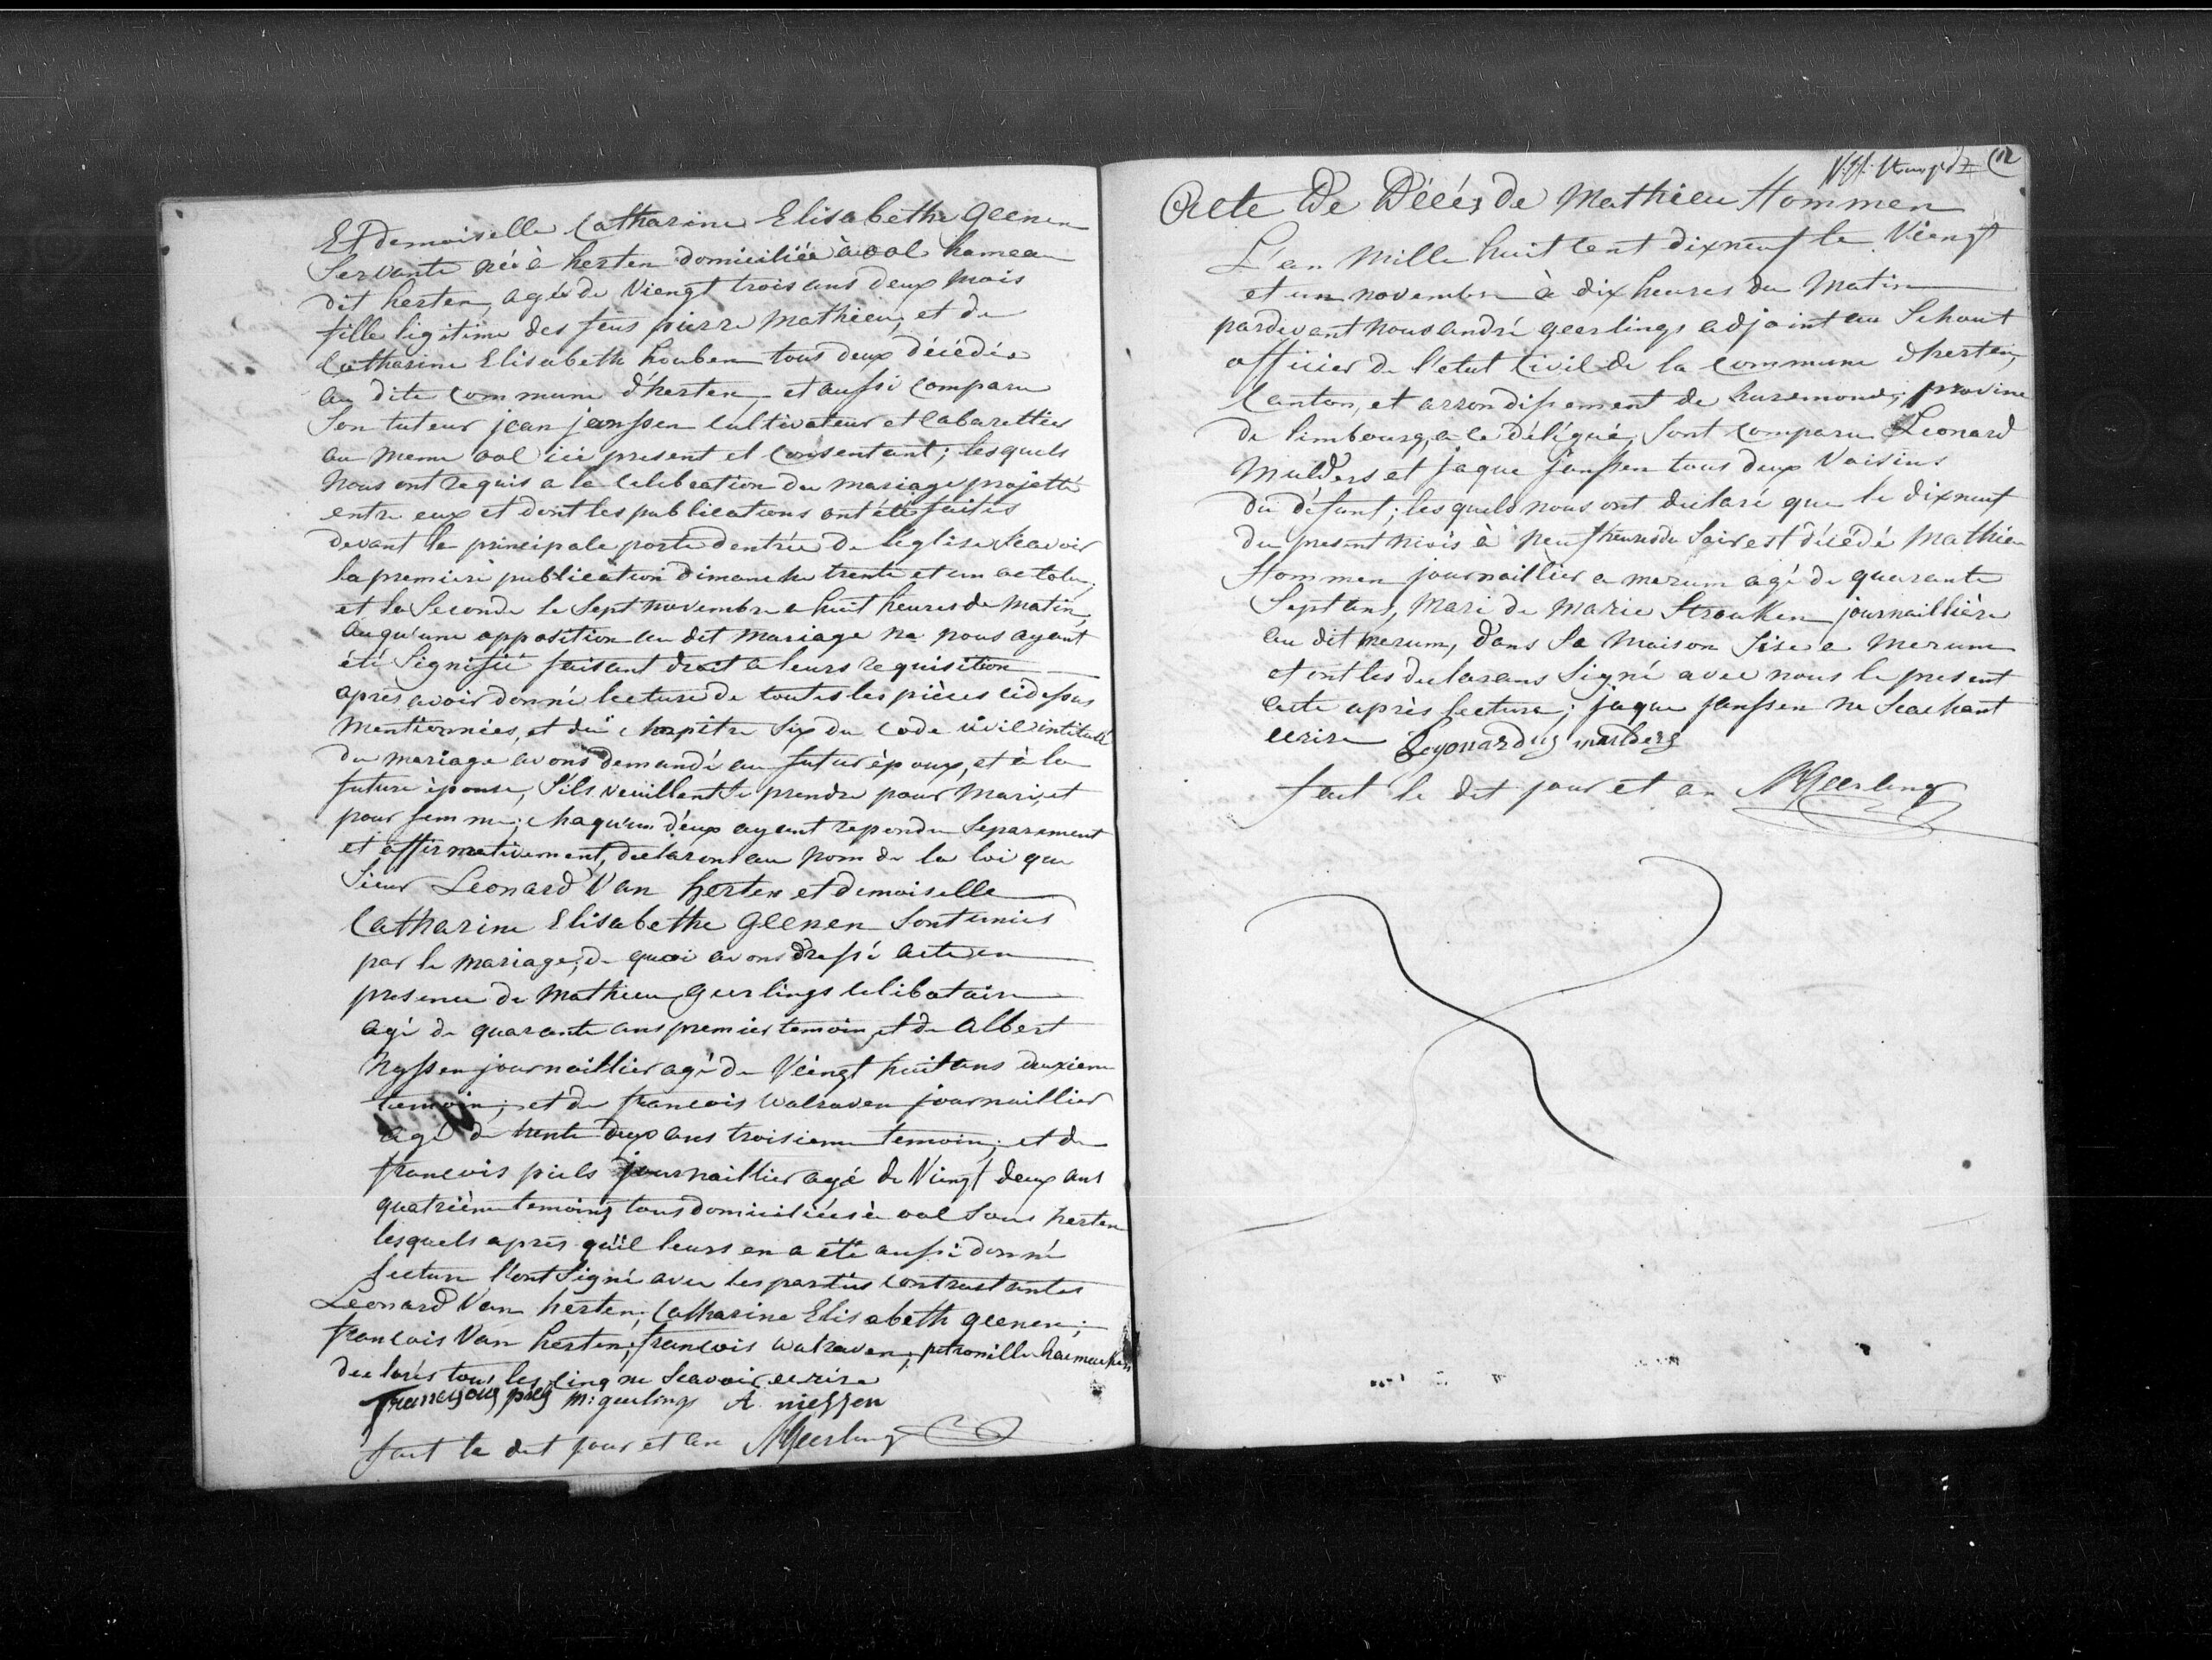 Et demoiselle Catharine Elisabethe Geenen
Servante née à herten domiciliée à ool hameau
dit herten, agée de Viengt trois ans deux mois
fille ligitime des feus pierre Mathieu, et de
Catharine Elisabeth houben tous deux décédés
au dite commune d'herten, et aussi comparu
Son tuteur jean janssen cultivateur et Cabarettier
au meme ool ici present et Consentant; lesquels
Nous ont requis a la Celebration du mariage projetté
entre eux et dont les publications ont été faites
devant la principale porte d'entrée de l'eglise Scavoir
la premiere publication dimanche trente et un octobre
et la Seconde le Sept novembre a huit heures du matin,
auqu'une opposition au dit mariage ne nous ayant
été Signifié faisant droit a leurs requisition
apres avoir donné lecture de toutes les pièces cidessus
mentionnées, et du chapitre Six du Code civil intitulé
du mariage avons demandé au futur époux, et à la
future épouse, S'ils veuillent Se prendre pour Mari, et
pour femme; chaqu'un d'eux ayant repondu Separement
et affirmativement, declarons au nom de la loi que
Sieur Leonard Van herten et demoiselle
Catharine Elisabethe Geenen Sont unies
par le mariage; de quoi avons dressé acte en
presence de Mathieu Geerlings celibataire
agé de quarante ans premier temoin et de Albert
Nyssen journaillier agé de Viengt huit ans deuxieme
temoin; et de francois walraven journaillier
agé de trente deux ans troisieme temoin; et de
francois piels journaillier agé de Viengt deux ans
quatrième temoins tous domiciliées à ool Sous herten
lesquels après qu'il leurs en a été aussi donné
lecture l'ont Signé avec les parties contractantes
Leonard Van herten; Catharine Elisabeth geenen;
francois Van herten; francois walraven; petronille
declarés tous les cinq ne Scavoir ecrire
m: geerlings A niessen
fait le dit jour et an AGeerlings
12
Acte De Décés de Mathieu Hommen
L'an Mille huit cent dixneuf le Viengt
et un novembre à dix heures du Matin
pardevant nous andré geerlings adjoint au Schout
officier de l'etat Civil de la Commune d'herten,
Canton, et arrondissement de huremonde; province
de limbourg, a ce délégué, Sont comparu Leonard
Mulders et jaque janssen tous deux Voisins
du défunt; lesquels nous ont declaré que le dixneuf
du present mois à neuf heures du Soir est décédé Mathieu
Hommen journaillier a merum agé de quarante
Sept ans, Mari de Marie Strouken journaillière
au dit merum, dans Sa Maison Sise a merum
et ont les declarans Signé avec nous le present
acte après lecture; jaque janssen ne Scachant
ecrire Leyonardus mulders
fait le dit jour et an AGeerlings